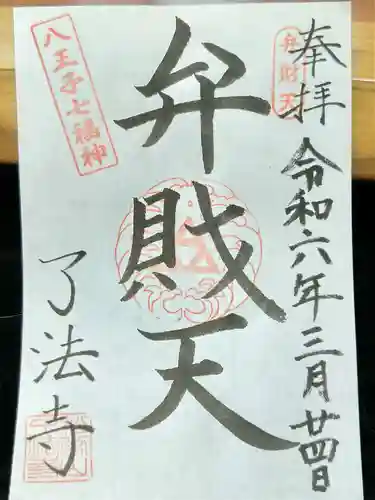 奉拝
令和六年三月廿四日
弁財天
弁財天
八王子七福神
了法寺